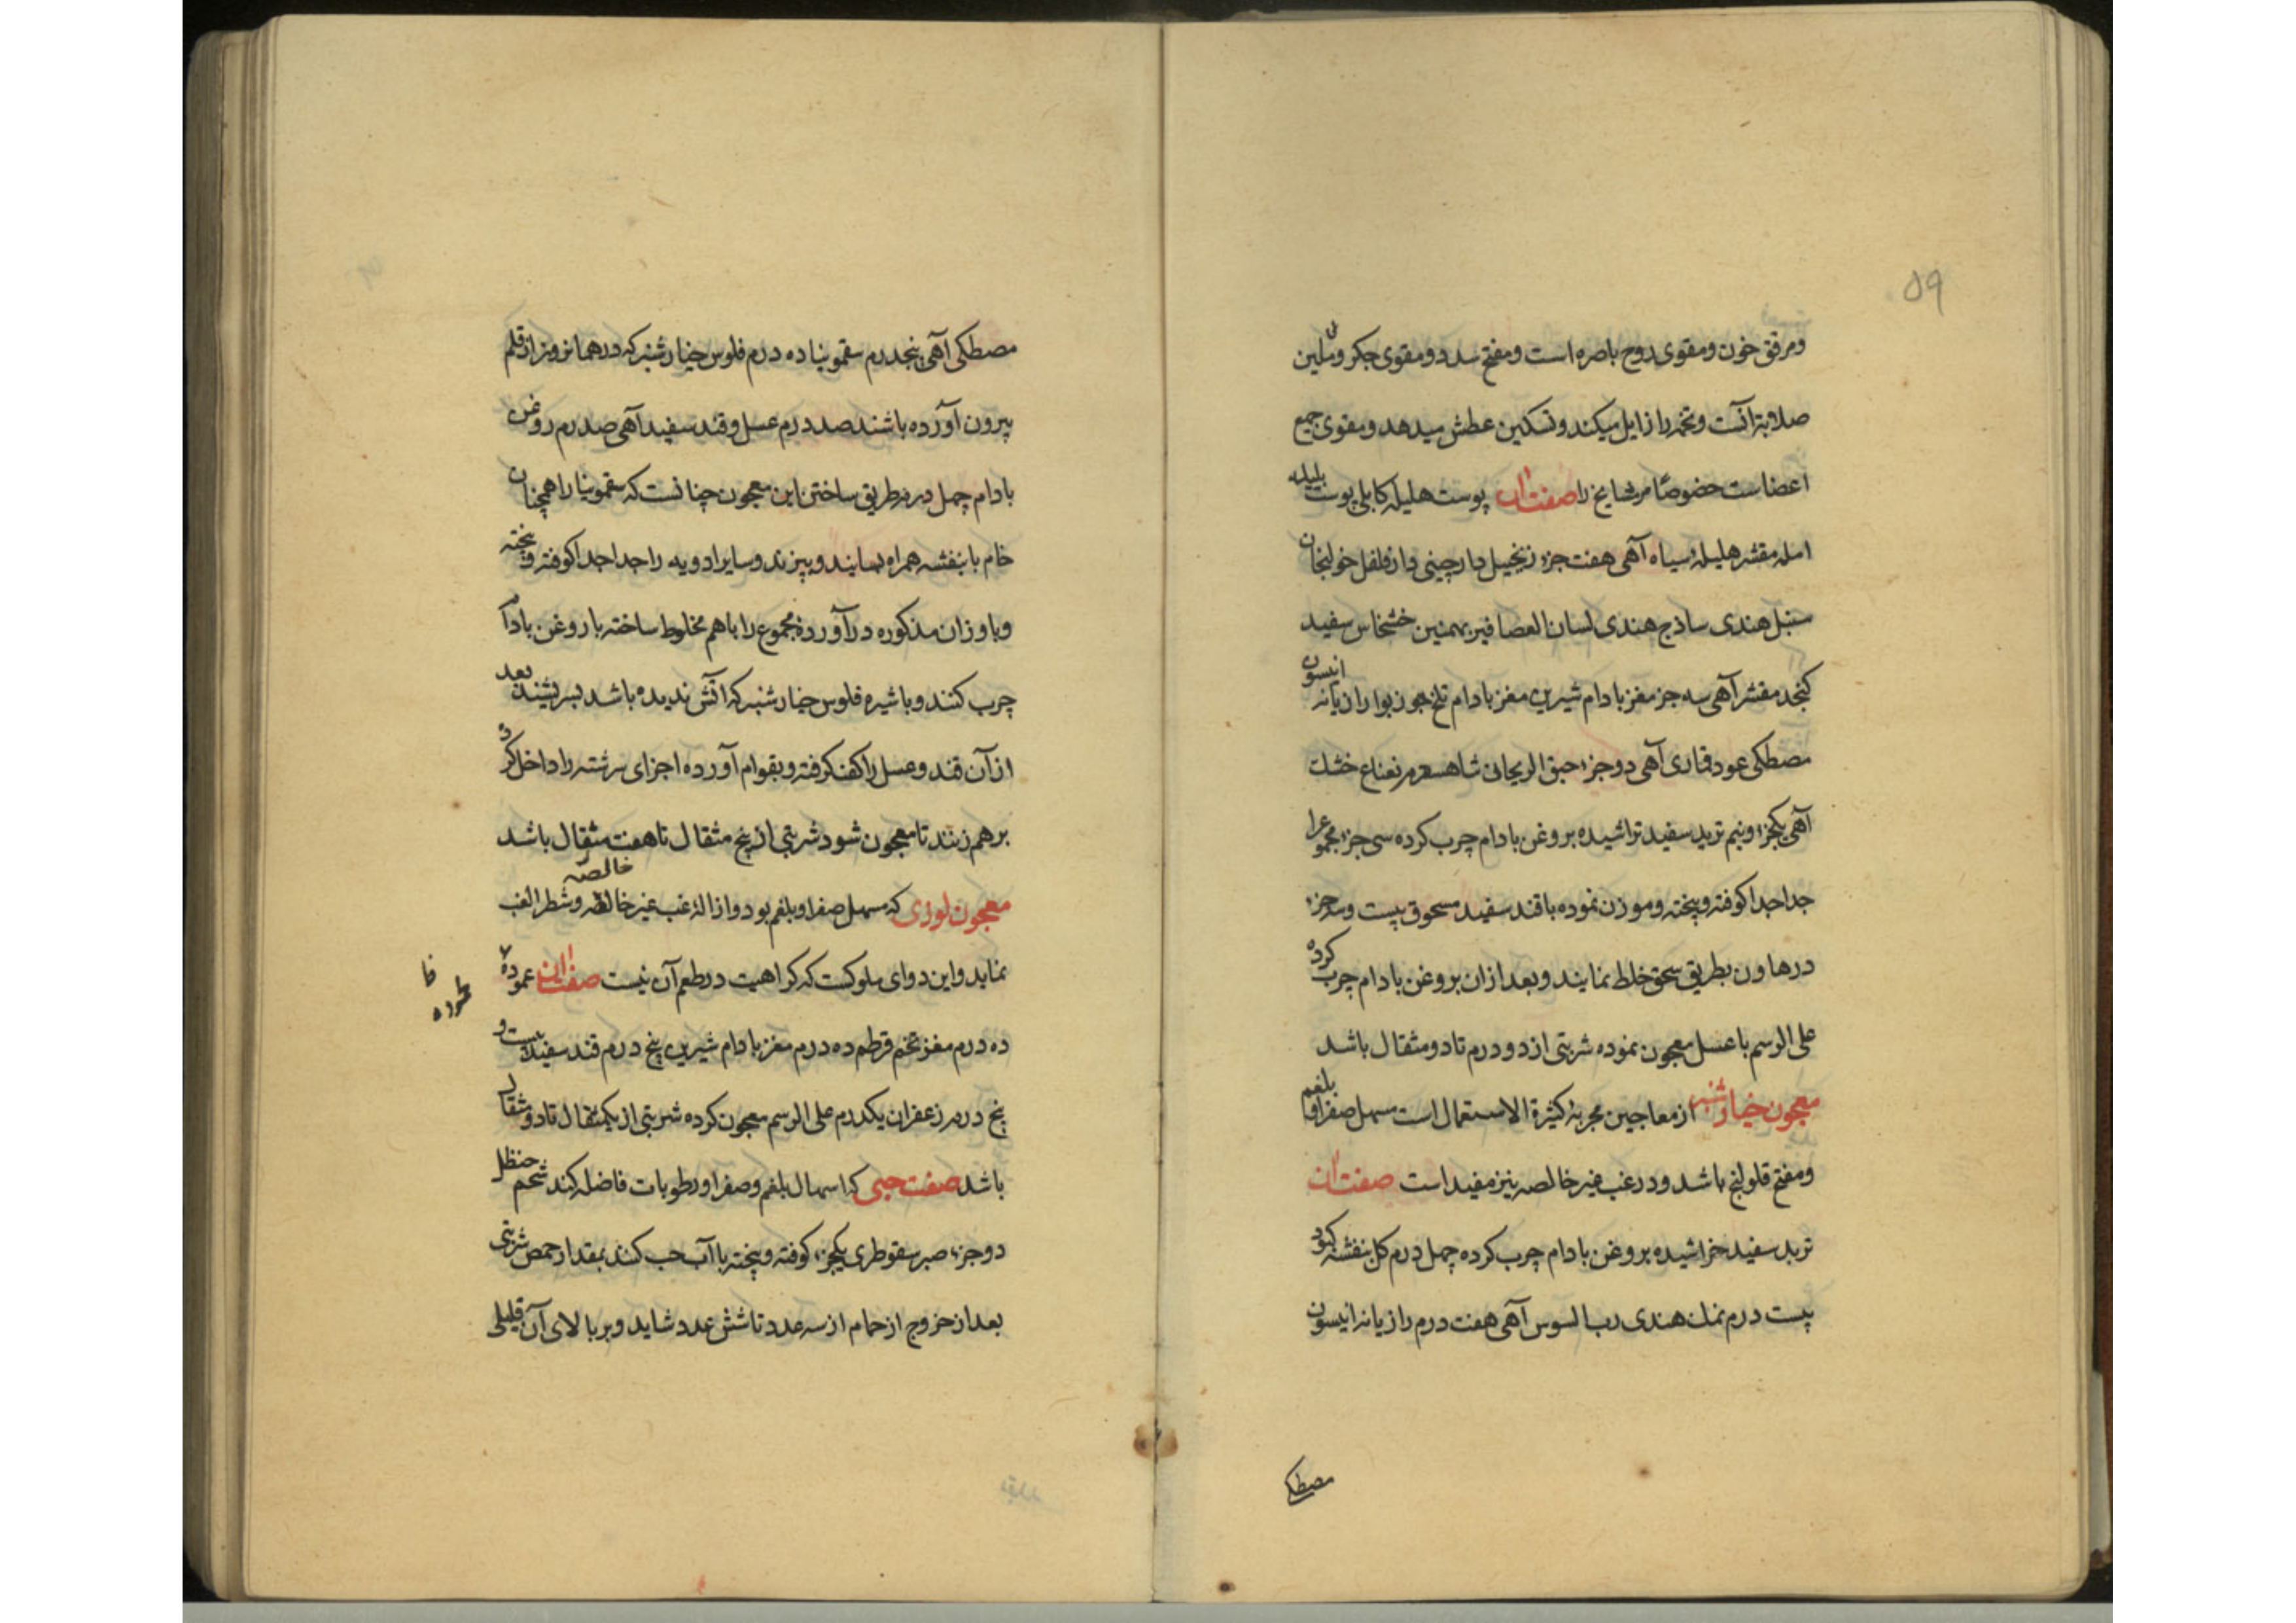 ۵۹
ومرقق خون ومقوی روح باصره است ومفتح سدد ومقوی جکر وملین
صلابة آنست وتخمه را زایل میکند وتسکین عطش میدهد ومقوی جمیع
اعضاست خصوصًا مرشایخ را صفت آن پوست هلیله کابلی پوست بلیله
امله مقشر هلیله سیاه آهی هفت جزء زنجبیل دارچینی دارفلفل خولنجان
سنبل هندی ساذج هندی لسان العصافیر بهمنین خشخاش سفید
کنجد مقشر آهی سه جز مغز بادام شیرین مغز بادام تلخ جوز بوا رازیانه انیسون
مصطکی عود قماری آهی دوجزء حبق الریحانی شاهسفرم نعناع خشك
آهی یکجزء ونیم تربد سفید تراشیده بروغن بادام چرب کرده سی جزء مجموع را
جداجدا کوفته وپخته وموزن نموده باقند سفید مسحوق بیست وسه جزء
درهاون بطریق سحق خلط نمایند وبعد ازان بروغن بادام چرب کرده
علی الرسم با عسل معجون نموده شربتی از دو درم تا دومثقال باشد
معجون خیارشنبر از معاجین مجربۀ کثیرة الاستعمال است مسهل صفرا وبلغم
ومفتح قولنج باشد ودرغب غیر خالصه نیز مفید است صفت آن
تربد سفید خراشیده بروغن بادام چرب کرده چهل درم کل بنفشه کبود
بیست درم نمك هندی رب السوس آهی هفت درم رازیانه انیسون
مصطکی
مصطکی آهی پنجدرم سقمونیا ده درم فلوس خیارشنبر که درهمانروز از قلم
بیرون آورده باشند صد درم عسل وقند سفید آهی صد درم روغن
بادام چهل درم طریق ساختن این معجون چنانست که سقمونیا را همچنان
خام با بنفشه همراه بسایند وبیزند وسایر ادویه را جدا جدا کوفته وپخته
وباوزان مذکوره درآورده مجموع را باهم مخلوط ساخته با روغن بادام
چرب کنند وباشیره فلوس خیارشنبر که آتش ندیده باشد بسریشند بعد
ازآن قند وعسل را کف کرفته وبقوام آورده اجزای سرشته را داخل کرد
برهم زنند تا معجون شود شربتی از پنج مثقال تا هفت مثقال باشد
معجون لوزی که مسهل صفرا وبلغم بود وازالۀ غب غیر خالصه وشطر الغب
خالصه
نماید واین دوای ملوکست که کراهیت درطعم آن نیست صفت آن عموده
محموده
ده درم مغز تخم قرطم ده درم مغز بادام شیرین پنج درم قند سفید بیست و
پنج درم زعفران یکدرم علی الرسم معجون کرده شربتی از یکمثقال تا دو مثقال
باشد صفت حبی که اسهال بلغم وصفرا ورطوبات فاضله کند شحم حنظل
دوجزء صبر سقوطری یکجزء کوفته وپخته با آب حب کند بمقدار حمص شربتی
بعد از خروج از حمام از سه عدد تا شش عدد شاید وبر بالای آن قلیلی